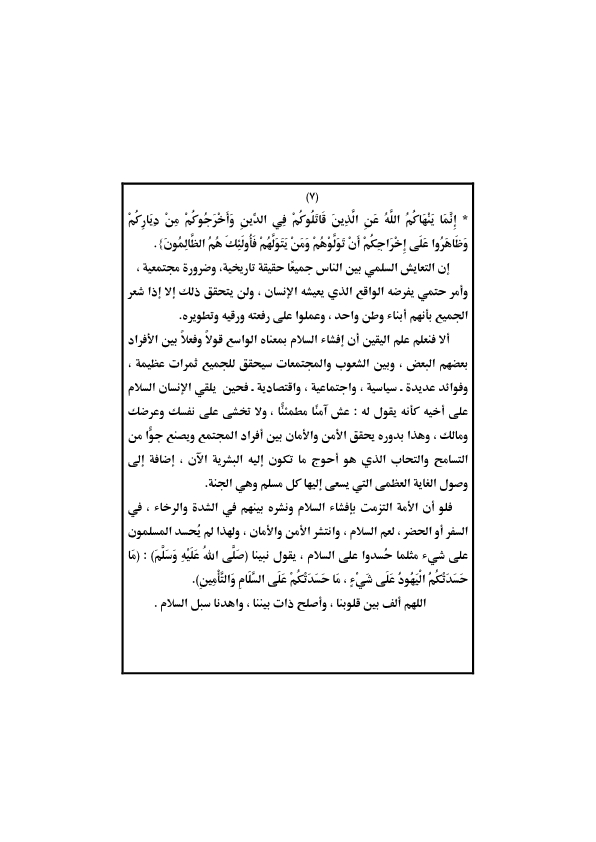 (٧)
* إِنَّمَا يَنْهَاكُمُ اللَّهُ عَنِ الَّذِينَ قَاتَلُوكُمْ فِي الدِّينِ وَأَخْرَجُوكُمْ مِنْ دِيَارِكُمْ
وَظَاهَرُوا عَلَى إِخْرَاجِكُمْ أَنْ تَوَلَّوْهُمْ وَمَنْ يَتَوَلَّهُمْ فَأُولَئِكَ هُمُ الظَّالِمُونَ} .
إن التعايش السلمي بين الناس جميعًا حقيقة تاريخية، وضرورة مجتمعية ،
وأمر حتمي يفرضه الواقع الذي يعيشه الإنسان ، ولن يتحقق ذلك إلا إذا شعر
الجميع بأنهم أبناء وطن واحد ، وعملوا على رفعته ورقيه وتطويره.
ألا فنعلم علم اليقين أن إفشاء السلام بمعناه الواسع قولاً وفعلاً بين الأفراد
بعضهم البعض ، وبين الشعوب والمجتمعات سيحقق للجميع ثمرات عظيمة ،
وفوائد عديدة ـ سياسية ، واجتماعية ، واقتصادية ـ فحين يلقي الإنسان السلام
على أخيه كأنه يقول له : عش آمنًا مطمئنًّا ، ولا تخشى على نفسك وعرضك
ومالك ، وهذا بدوره يحقق الأمن والأمان بين أفراد المجتمع ويصنع جوًّا من
التسامح والتحاب الذي هو أحوج ما تكون إليه البشرية الآن ، إضافة إلى
وصول الغاية العظمى التي يسعى إليها كل مسلم وهي الجنة.
فلو أن الأمة التزمت بإفشاء السلام ونشره بينهم في الشدة والرخاء ، في
السفر أو الحضر ، لعم السلام ، وانتشر الأمن والأمان ، ولهذا لم يُحسد المسلمون
على شيء مثلما حُسدوا على السلام ، يقول نبينا (صَلَّى اللهُ عَلَيْهِ وَسَلَّمَ) : (مَا
حَسَدَتْكُمُ الْيَهُودُ عَلَى شَيْءٍ ، مَا حَسَدَتْكُمْ عَلَى السَّلَامِ وَالتَّأْمِينِ).
اللهم ألف بين قلوبنا ، وأصلح ذات بيننا ، واهدنا سبل السلام .